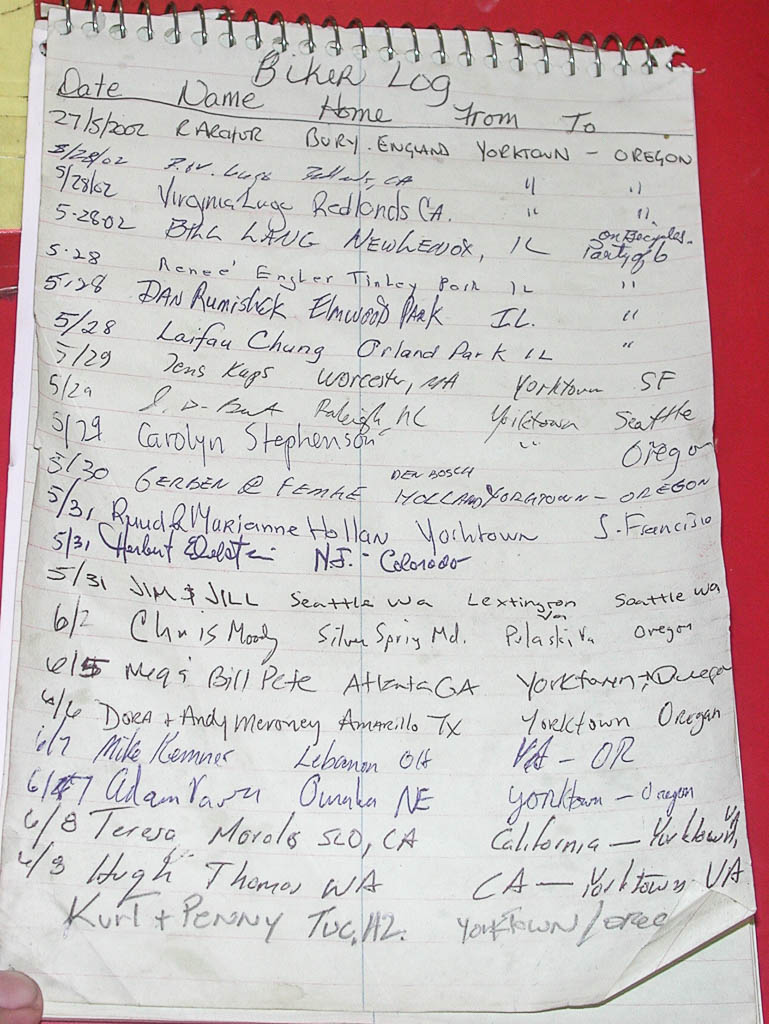 Biker Log
Date Name Home From To
27/5/2002 R ARCHUR BURY. ENGLAND YORKTOWN - OREGON
5/28/02 Lugo CA " "
5/28/02 Virginia Lugo Redlands CA. " "
5-28-02 BILL LANG NEW LENOX, IL on Bicycles- Party of 6
5-28 Renee' Engler Tinley Park IL "
5-28 DAN Rumishek Elmwood PARK IL. "
5/28 Laifau Chung Orland Park IL "
5/29 Jens Kups Worcester, MA Yorktown SF
5/29 Raleigh, NC Yorktown Seattle
5/29 Carolyn Stephenson " " Oregon
5/30 GERBEN @ FEMKE DEN BOSCH HOLLAND YORGTOWN - OREGON
5/31 Ruud & Marianne Hollan Yorktown S. Francisco
5/31 Herbert NJ. - Colorado
5/31 JIM & JILL Seattle Wa Lextington Va Seattle Wa
6/2 Chris Moody Silver Spring Md. Pulaski Va Oregon
6/5 Meg & Bill Pete Atlanta GA Yorktown → Oregon
6/6 DORA + Andy Meroney Amarillo TX Yorktown Oregon
6/7 Mike Kemner Lebanon OH VA - OR
6/7 Adam Omaha NE Yorktown - Oregon
6/8 Teresa Morales SLO, CA California - Yorktown, VA
6/8 Hugh Thomas WA CA - Yorktown VA
Kurt + PENNY TUC. AZ. YORKTOWN / oreg